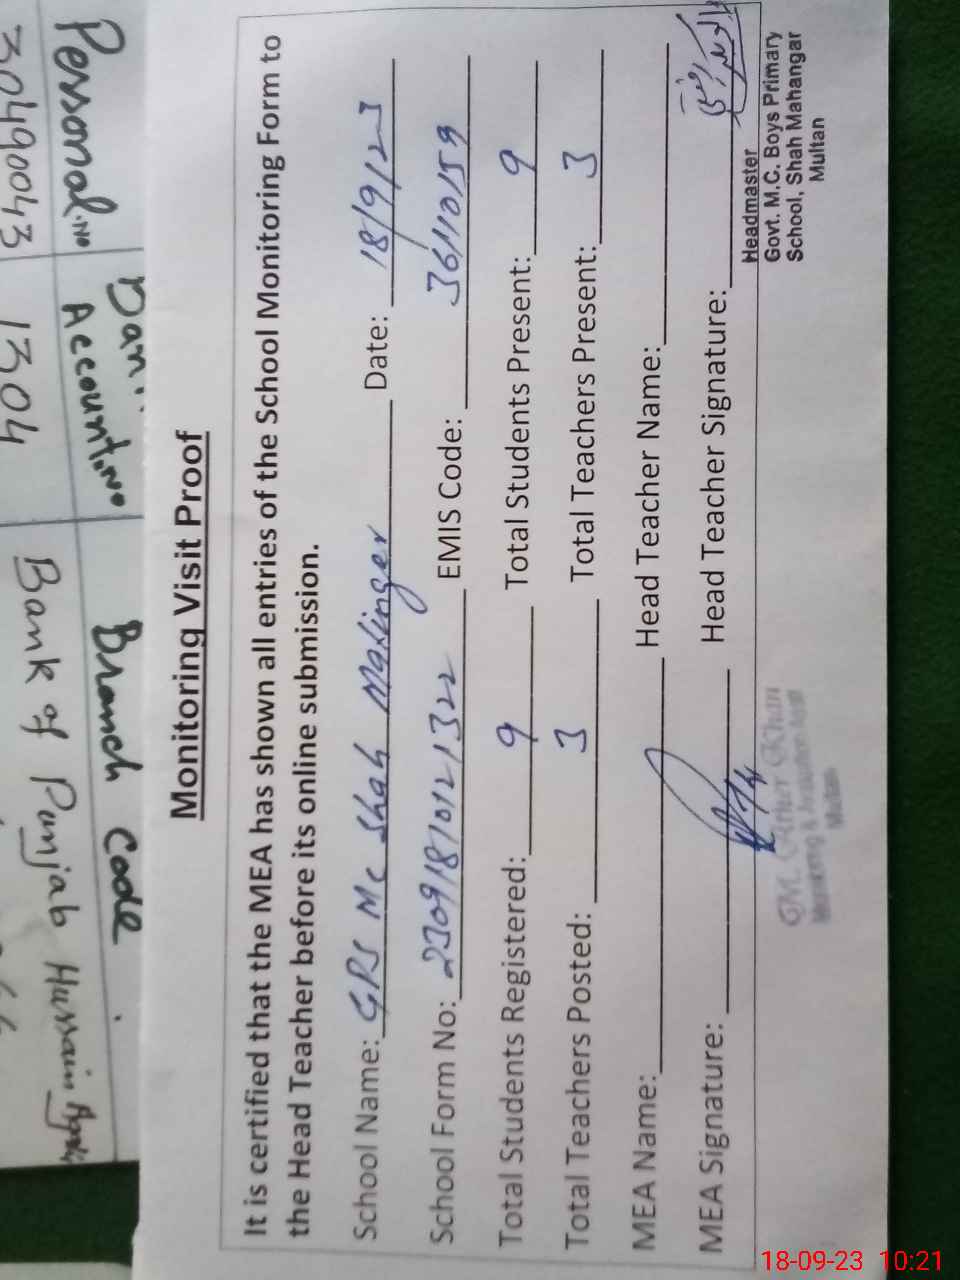 Monitoring Visit Proof
It is certified that the MEA has shown all entries of the School Monitoring Form to
the Head Teacher before its online submission.
School Name: GPS Mc Shah Malinger Date: 18/9/23
School Form No: 230918/0121322 EMIS Code: 36110159
Total Students Registered: 9 Total Students Present: 9
Total Teachers Posted: 3 Total Teachers Present: 3
MEA Name: Head Teacher Name:
MEA Signature: Head Teacher Signature:
Headmaster
Govt. M.C. Boys Primary
School, Shah Mahangar
Multan
Khan
Multan
Personal.No
Account.No
Branch Code
30490043
1304
Bank of Punjab Hussain
18-09-23 10:21